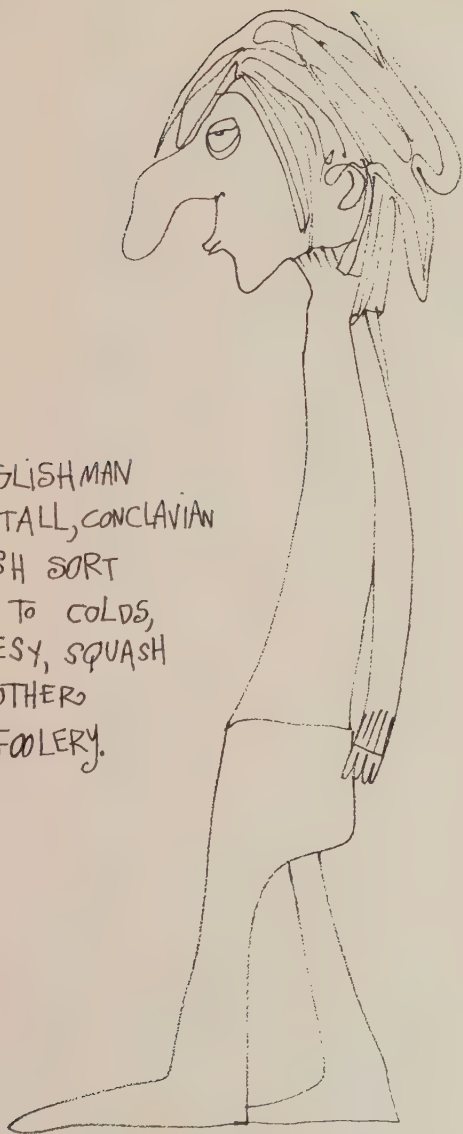 GLISHMAN
TALL, CONCLAVIAN
SH SORT
TO COLDS,
ESY, SQUASH
OTHER
FOOLERY.